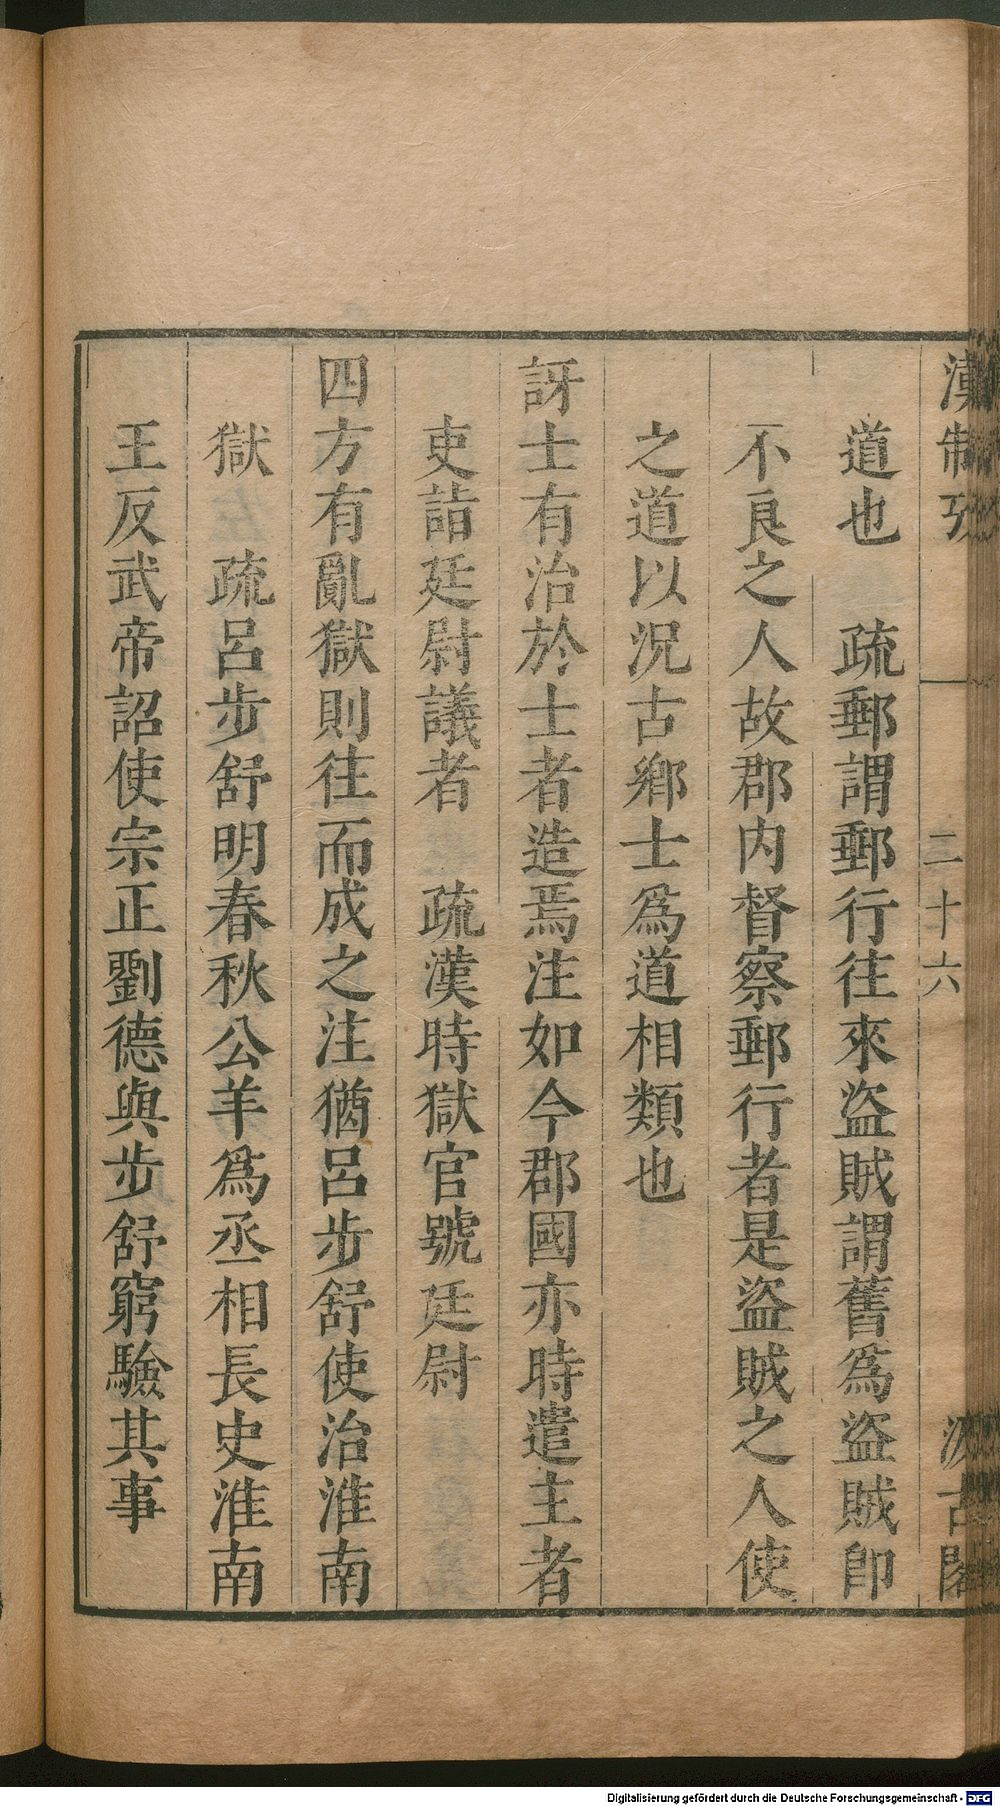 漢制攷 二十六 汲古閣
道也 疏郵謂郵行往來盜賊謂舊爲盜賊卽
不良之人故郡內督察郵行者是盜賊之人使
之道以况古鄉士爲道相類也
訝士有治於士者造焉注如今郡國亦時遣主者
吏詣廷尉議者 疏漢時獄官號廷尉
四方有亂獄則往而成之注猶呂步舒使治淮南
獄 疏呂步舒明春秋公羊爲丞相長史淮南
王反武帝詔使宗正劉德與步舒窮驗其事
Digitalisierung gefördert durch die Deutsche Forschungsgemeinschaft - DFG